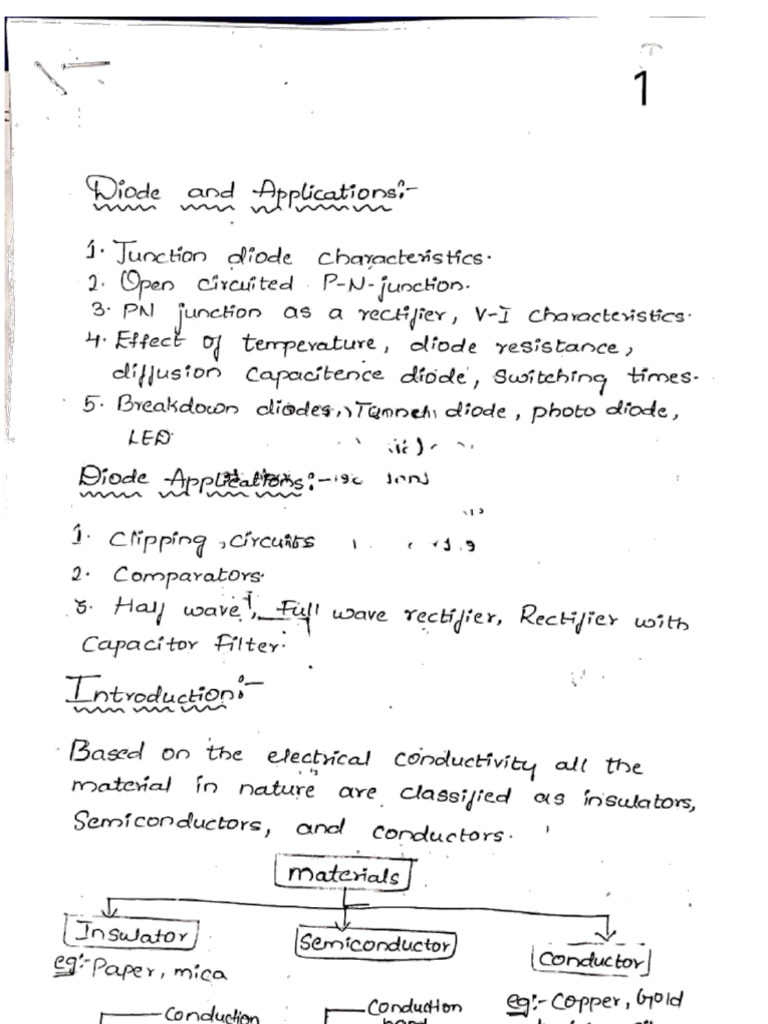 1
Diode and Applications:-
1. Junction diode characteristics.
2. Open circuited P-N-junction.
3. PN junction as a rectifier, V-I characteristics.
4. Effect of temperature, diode resistance,
diffusion capacitence diode, switching times.
5. Breakdown diodes, Tunnel diode, photo diode,
LED
Diode Applications:-
1. Clipping circuits
2. Comparators.
3. Half wave, Full wave rectifier, Rectifier with
Capacitor Filter.
Introduction:-
Based on the electrical conductivity all the
material in nature are classified as insulators,
Semiconductors, and conductors.
Materials
Insulator
Semiconductor
Conductor
eg:- Paper, mica
eg:- Copper, Gold
Conduction
Conduction
band